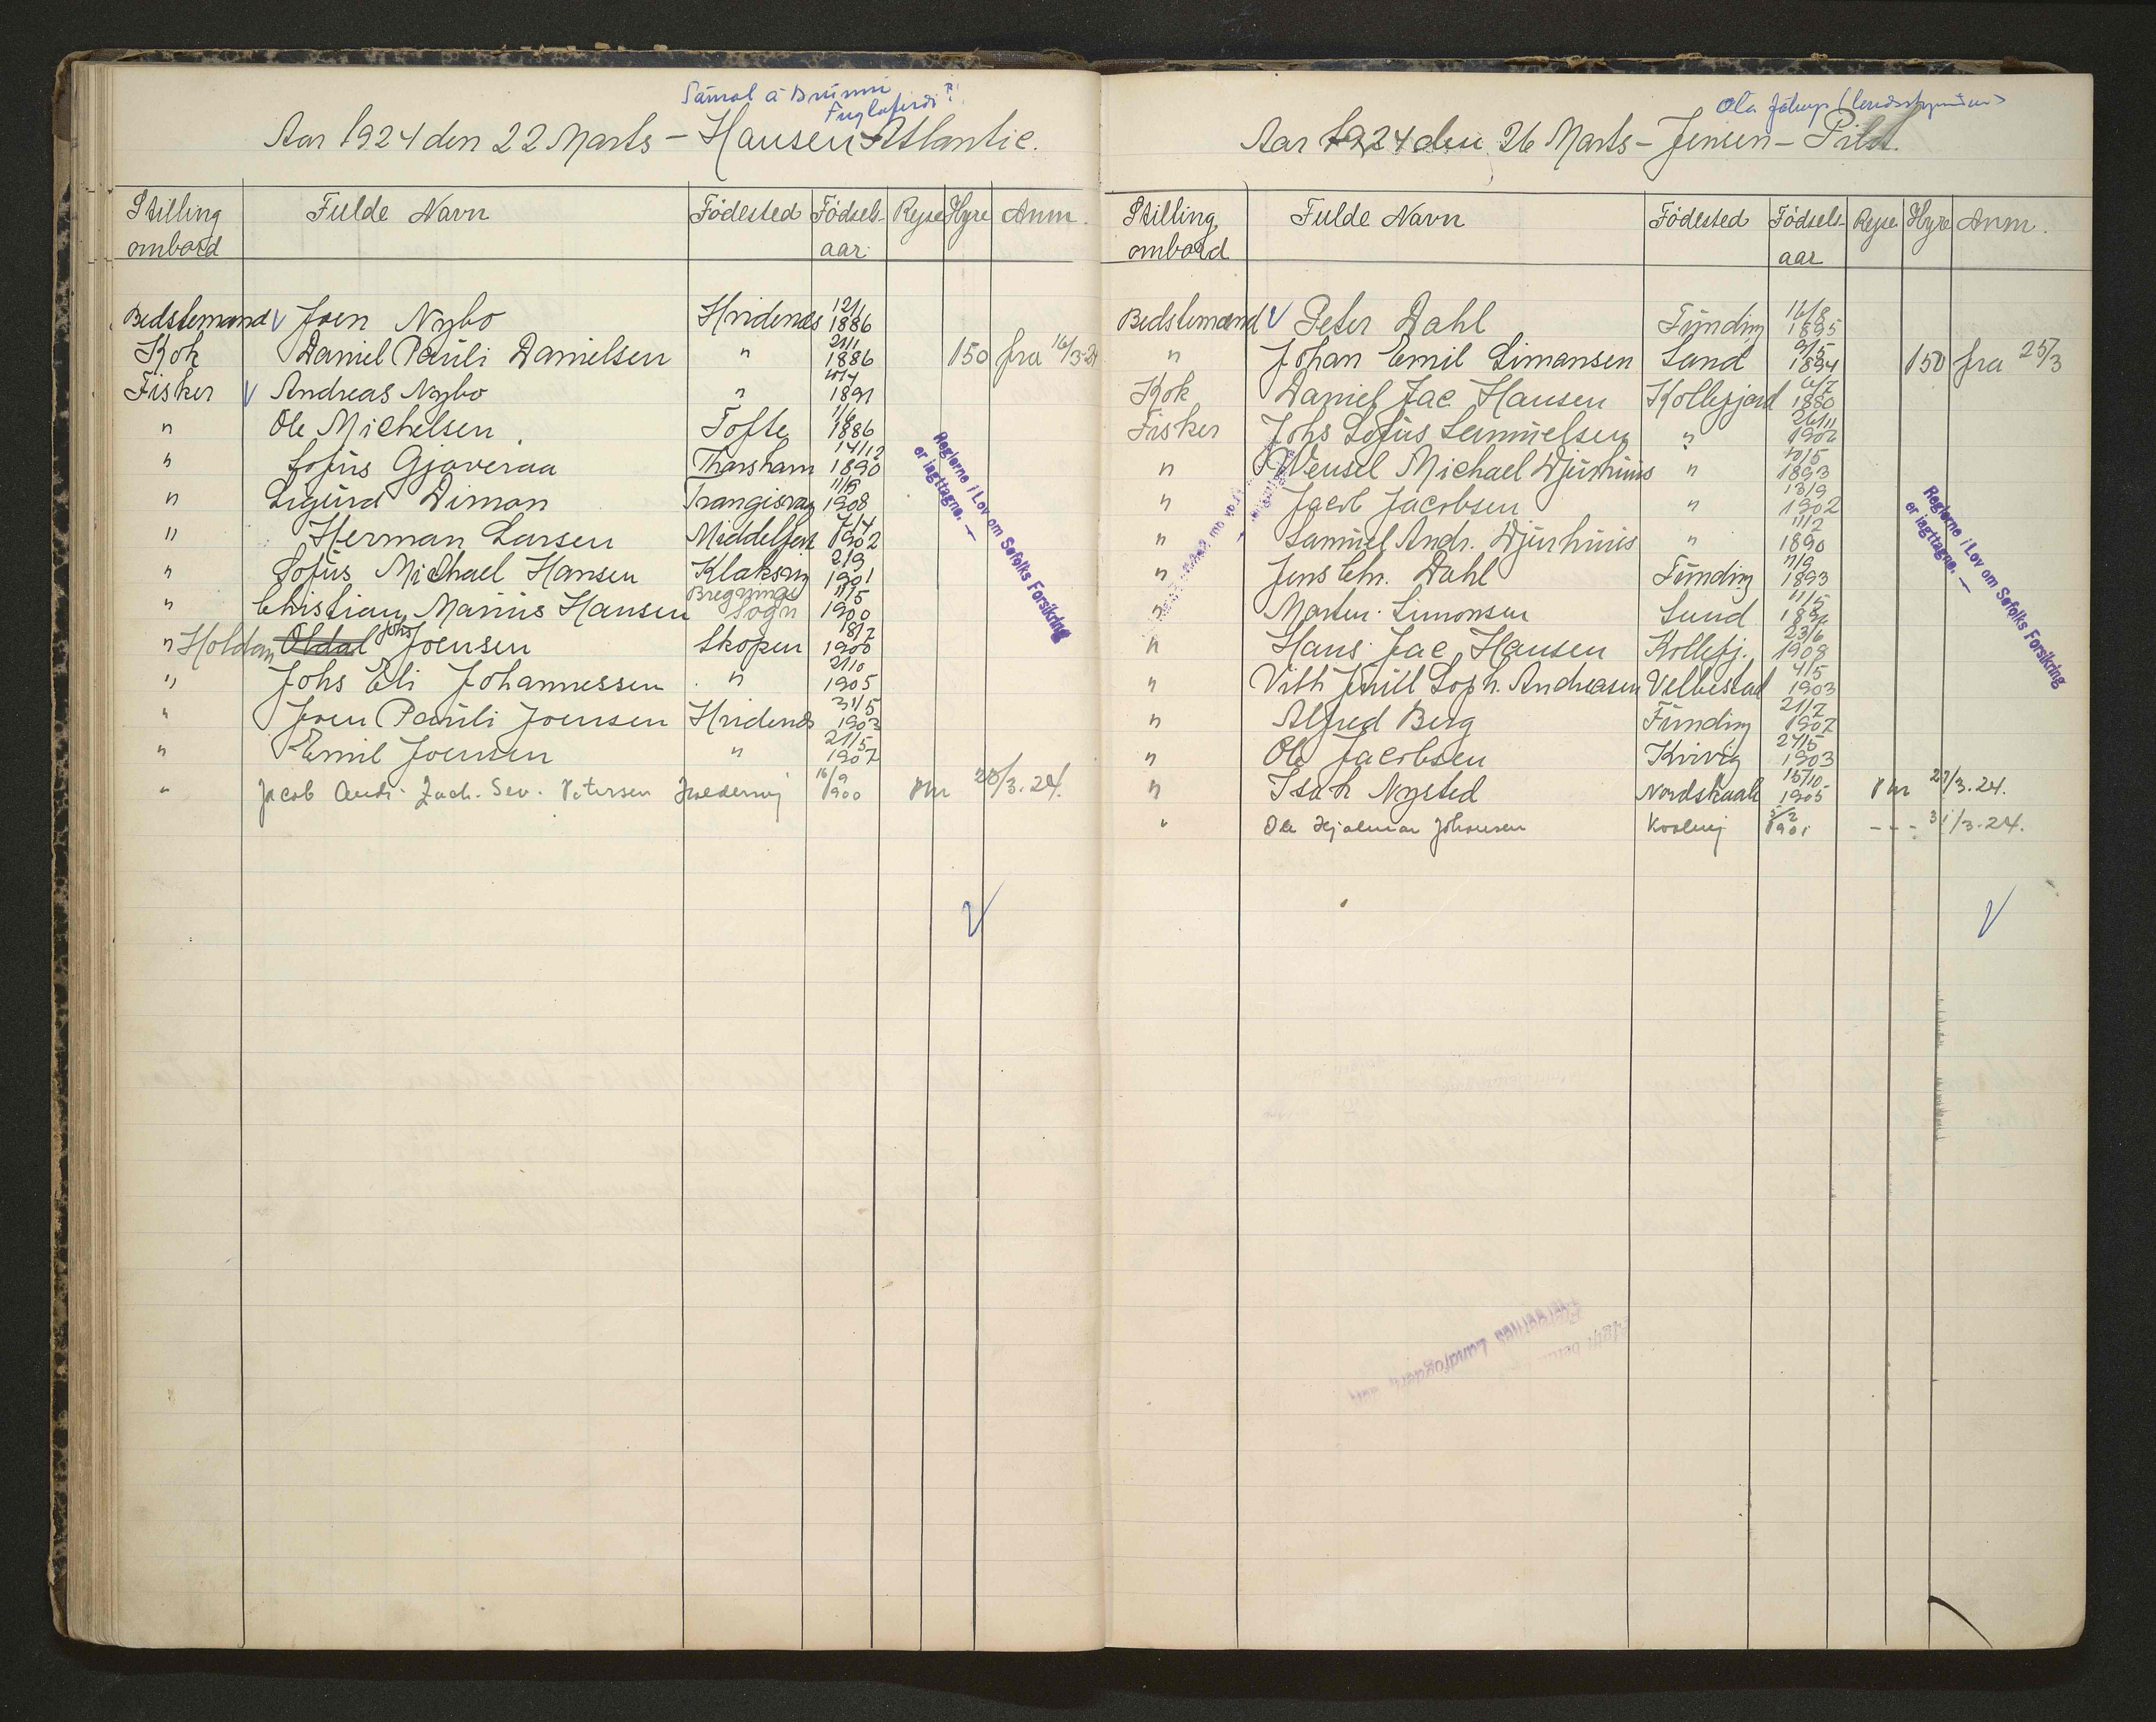 Sámal á Brúnni
Fuglafirdi?
Aar 1924 den 22 Marts - Hansen - Atlantic.
Stilling ombord Fulde Navn Födested Födsels-aar Rejse Hyre Anm.
Bedstemand Joen Nybo Hvidenes 12/6 1886
Kok Daniel Pauli Danielsen " 21/1 1886 150 fra 16/3-24
Fisker Andreas Nybo " 1891
" Ole Michelsen Tofte 1/6 1886
" Sofus Gjaveraa Thorshavn 14/12 1890
" Sigurd Dimon Trangisvaag 11/8 1908
" Herman Larsen Middelfart 7/4 1902
" Sofus Michael Hansen Klaksvig 2/9 1901
" Christian Marius Hansen Bregninge Sogn 11/5 1900
" Holdan Oldal Johs Joensen Skopen 18/7 1900
" Johs Eli Johannessen " 2/10 1905
" Joen Pauli Joensen Hvidenes 31/5 1903
" Emil Joensen " 21/5 1907
" Jacob Andr. Zach. Sev. Petersen 16/9 1900 Phr 28/3.24.
Reglerne i Lov om Søfolks Forsikring
er iagttagne. —
Ola Jákup
Aar 1924 den 26 Marts - Jensen - Pilot.
Stilling ombord Fulde Navn Födested Födsels-aar Rejse Hyre Anm.
Bedstemand Peter Dahl Funding 16/8 1895
" Johan Emil Simonsen Sand 9/5 1894 150 fra 25/3
Kok Daniel Jac Hansen Kollefjord 1880
Fisker Johs Sofus Samuelsen " 26/11 1902
" Wensel Michael Djurhuus " 10/5 1893
" Jacob Jacobsen " 13/9 1902
" Samuel Andr. Djurhuus " 11/2 1890
" Jens Chr. Dahl Funding 11/9 1893
" Morten Simonsen Sund 11/5
" Hans Jac Hansen Kollefj. 23/6 1908
" Soph. Andreasen Velbestad 4/5 1903
" Alfred Berg Funding 21/7 1907
" Ole Jacobsen Kvivig 24/5 1903
" Isak Nysted Nordskaale 15/10 1905 Phr 27/3.24.
" Ole Hjalmar Johansen 5/2 1901 - - - 31/3.24.
Reglerne i Lov om Søfolks Forsikring
er iagttagne. —